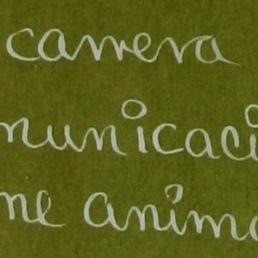 carrera
municaci
ne anima